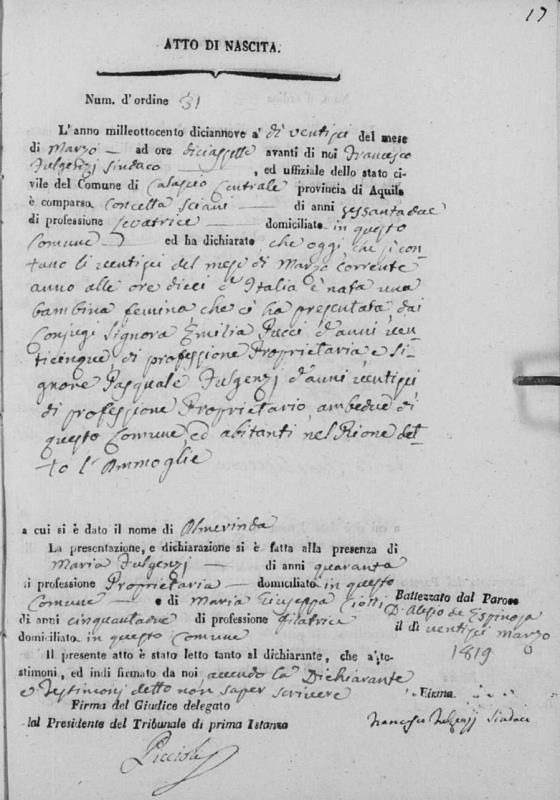 17
ATTO DI NASCITA.
Num. d'ordine 31
L'anno milleottocento diciannove a' dì ventisei del mese
di Marzo ad ore diciassette avanti di noi Francesco
Fulgenzj Sindaco , ed uffiziale dello stato ci-
vile del Comune di Calascio Centrale provincia di Aquila
è comparsa Concetta Sciani di anni sessantadue
di professione Levatrice domiciliata in questo
Comune ed ha dichiarato, che oggi, che si con-
tano li ventisei del mese di Marzo corrente
anno alle ore dieci d'Italia è nata una
bambina femina che ci ha presentata dai
Conjugi Signora Emilia Pucci d'anni ven-
ticinque di professione Proprietaria e Si-
gnore Pasquale Fulgenzj d'anni ventisei
di professione Proprietario, ambedue di
questo Comune ed abitanti nel Rione det-
to l'Ammoglie
a cui si è dato il nome di Almerinda
La presentazione, e dichiarazione si è fatta alla presenza di
Maria Fulgenzj di anni quaranta
di professione Proprietaria domiciliato in questo
Comune e di Maria Giuseppa Ciotti
di anni cinquantadue di professione filatrice
domiciliato in questo Comune
Battezzato dal Paroco
D. Alesio de Espinosa
il dì ventisei Marzo
1819
Il presente atto è stato letto tanto al dichiarante, che a' te-
stimonj, ed indi firmato da noi avendo la Dichiarante
e Testimonj detto non saper scrivere
Firma del Giudice delegato
dal Presidente del Tribunale di prima Istanza
Firma.
Francesco Fulgenzj Sindaco
Piccioli